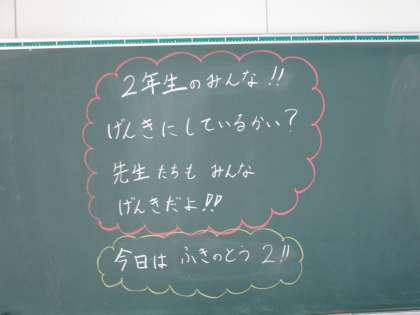 2年生のみんな!!
げんきにしているかい?
先生たちも みんな
げんきだよ!!
今日は ふきのとう 2!!